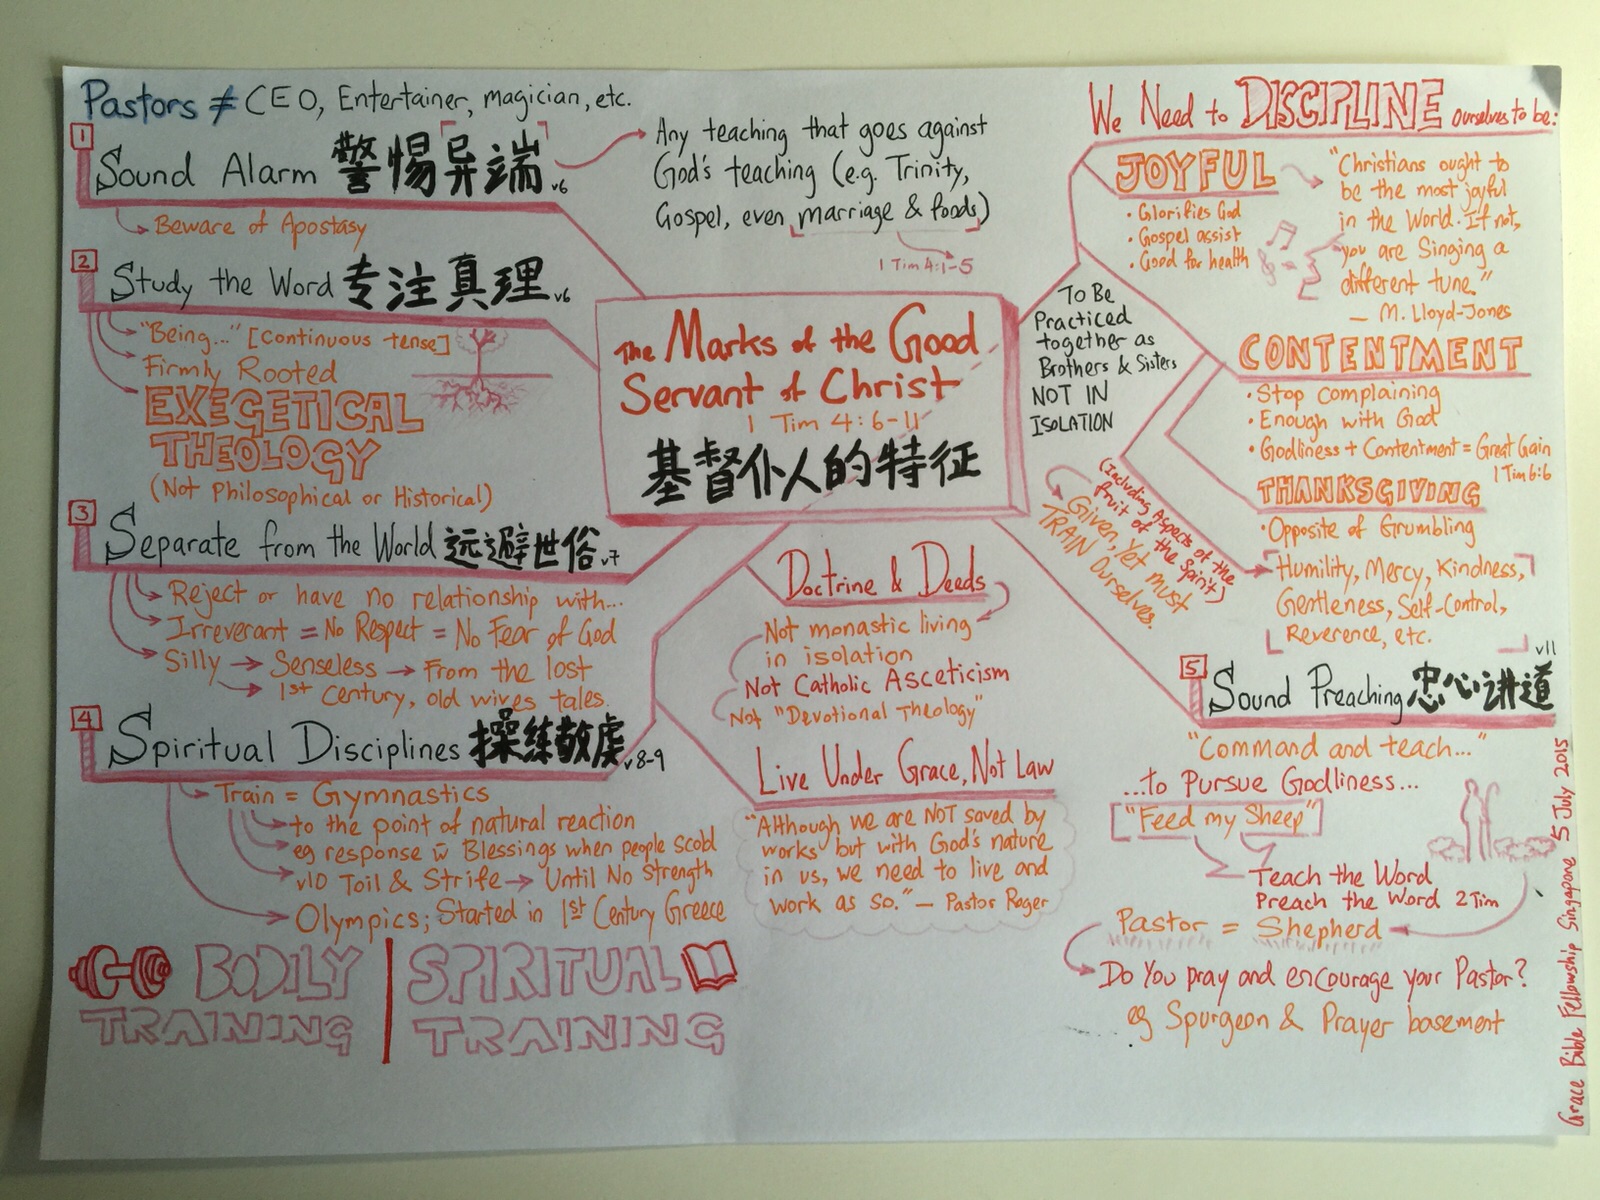 Pastors ≠ CEO, Entertainer, magician, etc.
1
Sound Alarm 警惕异端 v6
Beware of Apostasy
Any teaching that goes against
God's teaching (e.g. Trinity,
Gospel, even marriage & foods)
1 Tim 4:1-5
2
Study the Word 专注真理 v6
"Being..." [continuous tense]
Firmly Rooted
EXEGETICAL
THEOLOGY
(Not Philosophical or Historical)
3
Separate from the World 远避世俗 v7
Reject or have no relationship with...
Irreverant = No Respect = No Fear of God
Silly → Senseless → From the lost
→ 1st Century, old wives tales.
4
Spiritual Disciplines 操练敬虔 v8-9
Train = Gymnastics
to the point of natural reaction
eg response w̄ Blessings when people scold
v10 Toil & Strife → Until No Strength
Olympics; Started in 1st Century Greece
BODILY
TRAINING
SPIRITUAL
TRAINING
The Marks of the Good
Servant of Christ
1 Tim 4:6-11
基督仆人的特征
Doctrine & Deeds
Not monastic living
in isolation
Not Catholic Asceticism
Not "Devotional Theology"
Live Under Grace, Not Law
"Although we are NOT saved by
works but with God's nature
in us, we need to live and
work as so." — Pastor Roger
We Need to DISCIPLINE ourselves to be:
JOYFUL
• Glorifies God
• Gospel assist
• Good for health
"Christians ought to
be the most joyful
in the World. If not,
you are Singing a
different tune."
— M. Lloyd-Jones
To Be
Practiced
together as
Brothers & Sisters
NOT IN
ISOLATION
CONTENTMENT
• Stop complaining
• Enough with God
• Godliness + Contentment = Great Gain
1 Tim 6:6
THANKSGIVING
• Opposite of Grumbling
(Including Aspects of the
fruit of the Spirit)
Given, Yet must
TRAIN Ourselves.
Humility, Mercy, Kindness,
Gentleness, Self-Control,
Reverence, etc.
5
Sound Preaching 忠心讲道 v11
"Command and teach..."
...to Pursue Godliness...
["Feed my Sheep"]
Teach the Word
Preach the Word 2 Tim
Pastor = Shepherd
Do You pray and encourage your Pastor?
eg Spurgeon & Prayer basement
Grace Bible Fellowship Singapore 5 July 2015